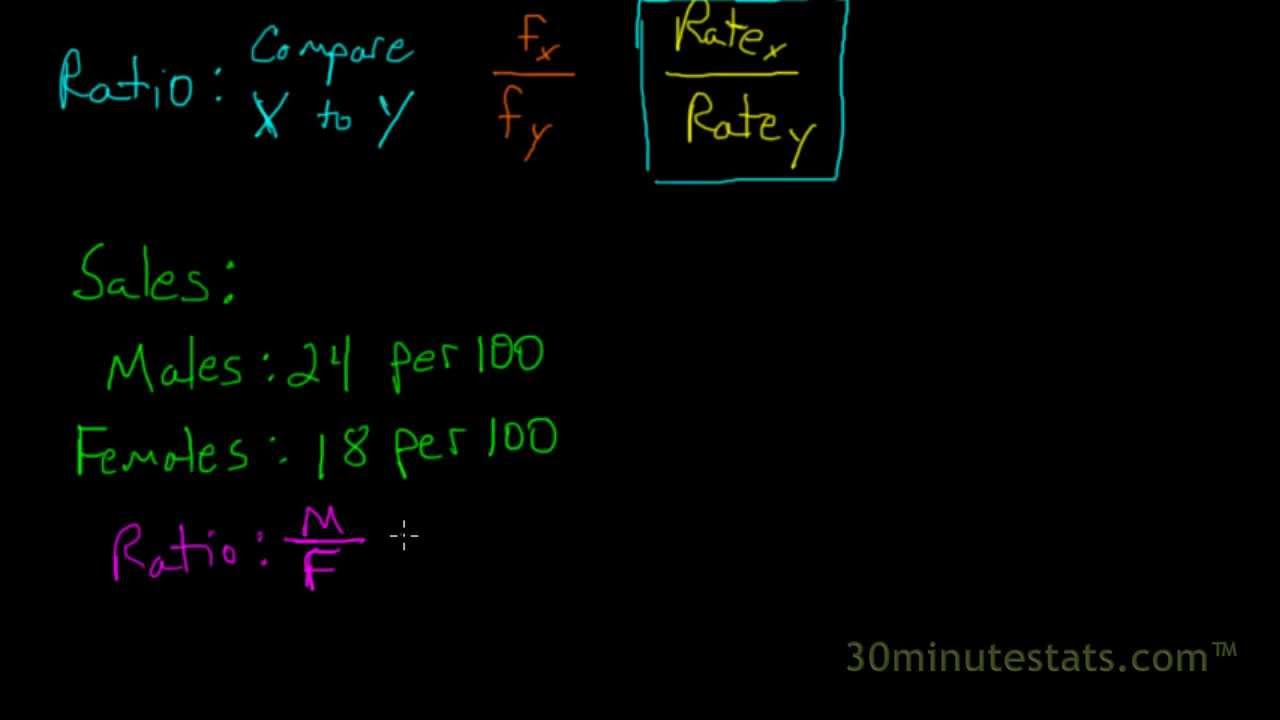 Ratio: Compare X to Y
fx / fy
Ratex / Ratey
Sales:
Males: 24 per 100
Females: 18 per 100
Ratio: M / F
30minutestats.com™